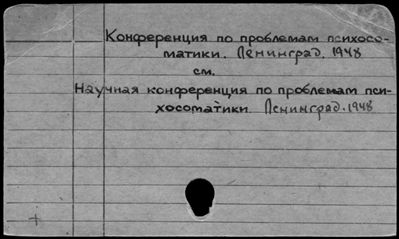 Конференция по проблемам психосо-
матики. Ленинград. 1948
см.
Научная конференция по проблемам пси-
хосоматики. Ленинград. 1948